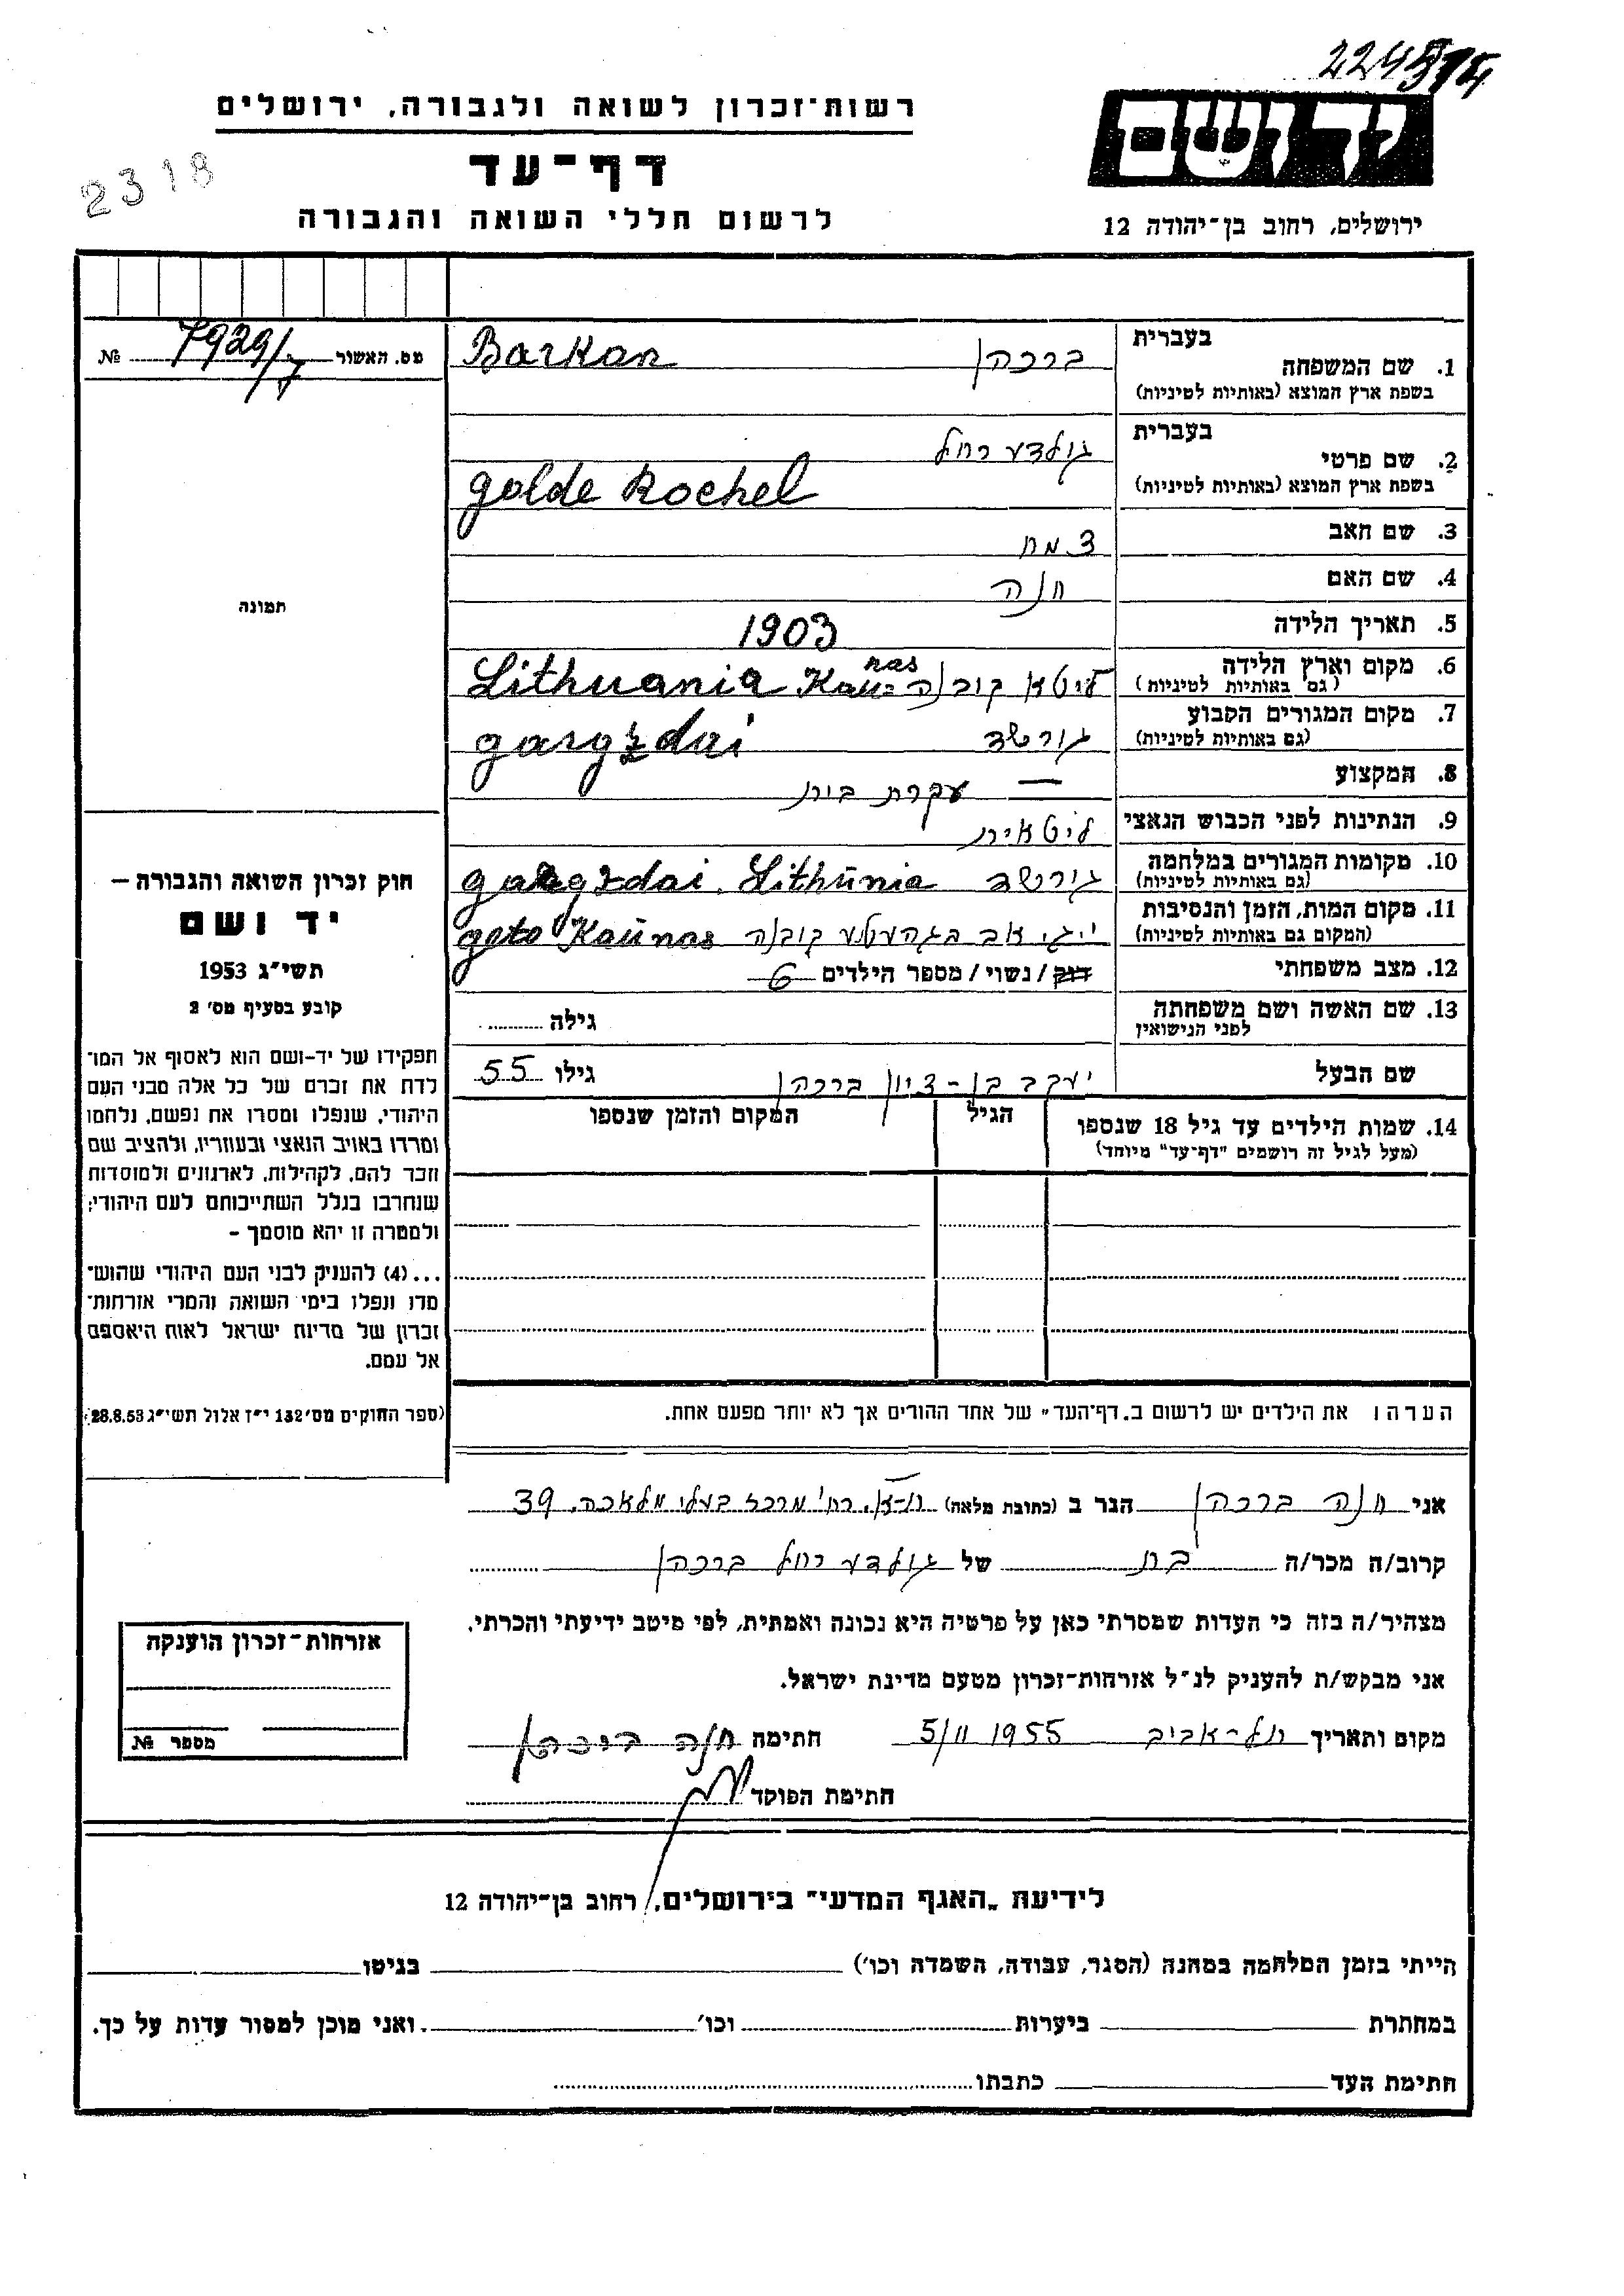 224514
רשות־זכרון לשואה ולגבורה, ירושלים
יד ושם
דף־עד
2318
לרשום חללי השואה והגבורה
ירושלים, רחוב בן־יהודה 12
מס. האשור 7929/7 №
בעברית
1. שם המשפחה ברכהן Barkan
בשפת ארץ המוצא (באותיות לטיניות)
בעברית
2. שם פרטי גולדע רחל
בשפת ארץ המוצא (באותיות לטיניות) golde Rochel
3. שם האב צמח
4. שם האם חנה
5. תאריך הלידה 1903
6. מקום וארץ הלידה ליטא קובנה Kaunas Lithuania
(גם באותיות לטיניות)
7. מקום המגורים הקבוע גורשד gargzdai
(גם באותיות לטיניות)
8. המקצוע — עקרת בית
9. הנתינות לפני הכבוש הנאצי ליטאית
10. מקומות המגורים במלחמה גורשד gargzdai. Lithunia
(גם באותיות לטיניות)
11. מקום המות, הזמן והנסיבות קובנה geto Kaunas
(המקום גם באותיות לטיניות)
12. מצב משפחתי רווק / נשוי / מספר הילדים 6
13. שם האשה ושם משפחתה גילה
לפני הנישואין
שם הבעל יעקב בן-ציון ברכהן גילו 55
14. שמות הילדים עד גיל 18 שנספו הגיל המקום והזמן שנספו
(מעל לגיל זה רושמים "דף־עד" מיוחד)
הערה: את הילדים יש לרשום ב"דף־העד" של אחד ההורים אך לא יותר מפעם אחת.
תמונה
חוק זכרון השואה והגבורה –
יד ושם
תשי"ג 1953
קובע בסעיף מס' 2
תפקידו של יד-ושם הוא לאסוף אל המו־
לדת את זכרם של כל אלה מבני העם
היהודי, שנפלו ומסרו את נפשם, נלחמו
ומרדו באויב הנאצי ובעוזריו, ולהציב שם
וזכר להם, לקהילות, לארגונים ולמוסדות
שנחרבו בגלל השתייכותם לעם היהודי;
ולמטרה זו יהא מוסמך –
...(4) להעניק לבני העם היהודי שהוש־
מדו ונפלו בימי השואה והמרי אזרחות־
זכרון של מדינת ישראל לאות היאספם
אל עמם.
(ספר החוקים מס' 132 י"ז אלול תשי"ג 28.8.53)
אני חנה ברכהן הגר ב (כתובת מלאה) ת-א, רח' מרכז בעלי מלאכה 39
קרוב/ה מכר/ה בת של גולדע רחל ברכהן
מצהיר/ה בזה כי העדות שמסרתי כאן על פרטיה היא נכונה ואמתית, לפי מיטב ידיעתי והכרתי.
אני מבקש/ת להעניק לנ"ל אזרחות-זכרון מטעם מדינת ישראל.
מקום ותאריך תל-אביב 5/11 1955 חתימה חנה ברכהן
חתימת הפוקד
אזרחות־זכרון הוענקה
מספר №
לידיעת "האגף המדעי" בירושלים, רחוב בן־יהודה 12
הייתי בזמן המלחמה במחנה (הסגר, עבודה, השמדה וכו') בגיטו
במחתרת ביערות וכו' ואני מוכן למסור עדות על כך.
חתימת העד כתבתו